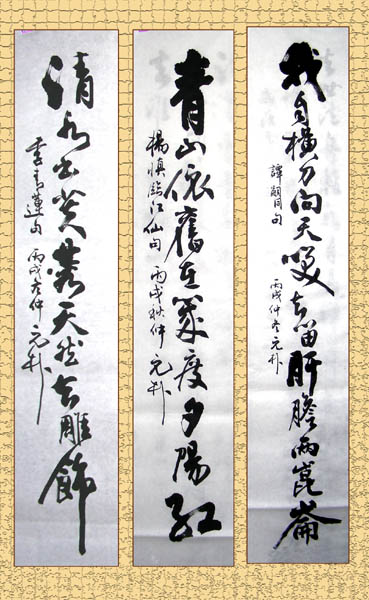 我自横刀向天笑去留肝膽兩崑崙
譚嗣同句
丙戌仲冬元朴
青山依舊在幾度夕陽紅
楊慎臨江仙句 丙戌秋仲 元朴
清水出芙蓉天然去雕飾
李青蓮句 丙戌冬仲 元朴